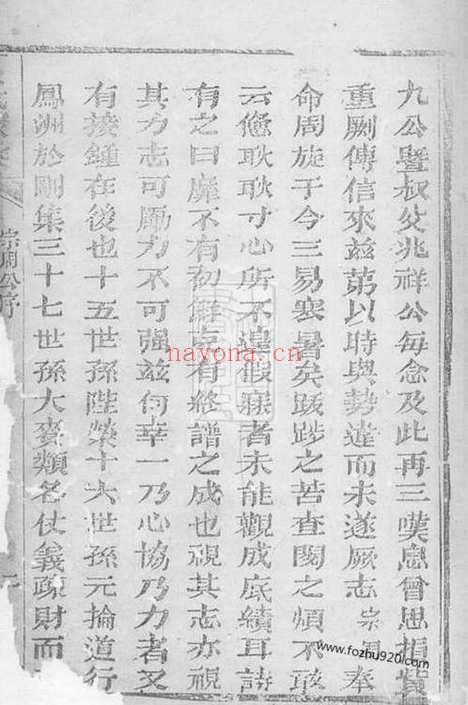 九公暨叔父兆祥公每念及此再三嘆息曾思捐貲
重劂傳信來茲第以時與勢違而未遂厥志宗周奉
命周旋于今三易寒暑矣跋踄之苦查閱之煩不敢
云憊耿耿寸心所不遑假寐者未能觀成底績耳詩
有之曰靡不有初鮮克有終譜之成也視其志亦視
其力志可勵力不可强茲何幸一乃心協乃力者又
有接鍾在後也十五世孫陛榮十六世孫元掄道行
鳳洲於剛集三十七世孫大賚類名仗義疎財而
宗周公序
nayona.cn
www.fozhu920.com